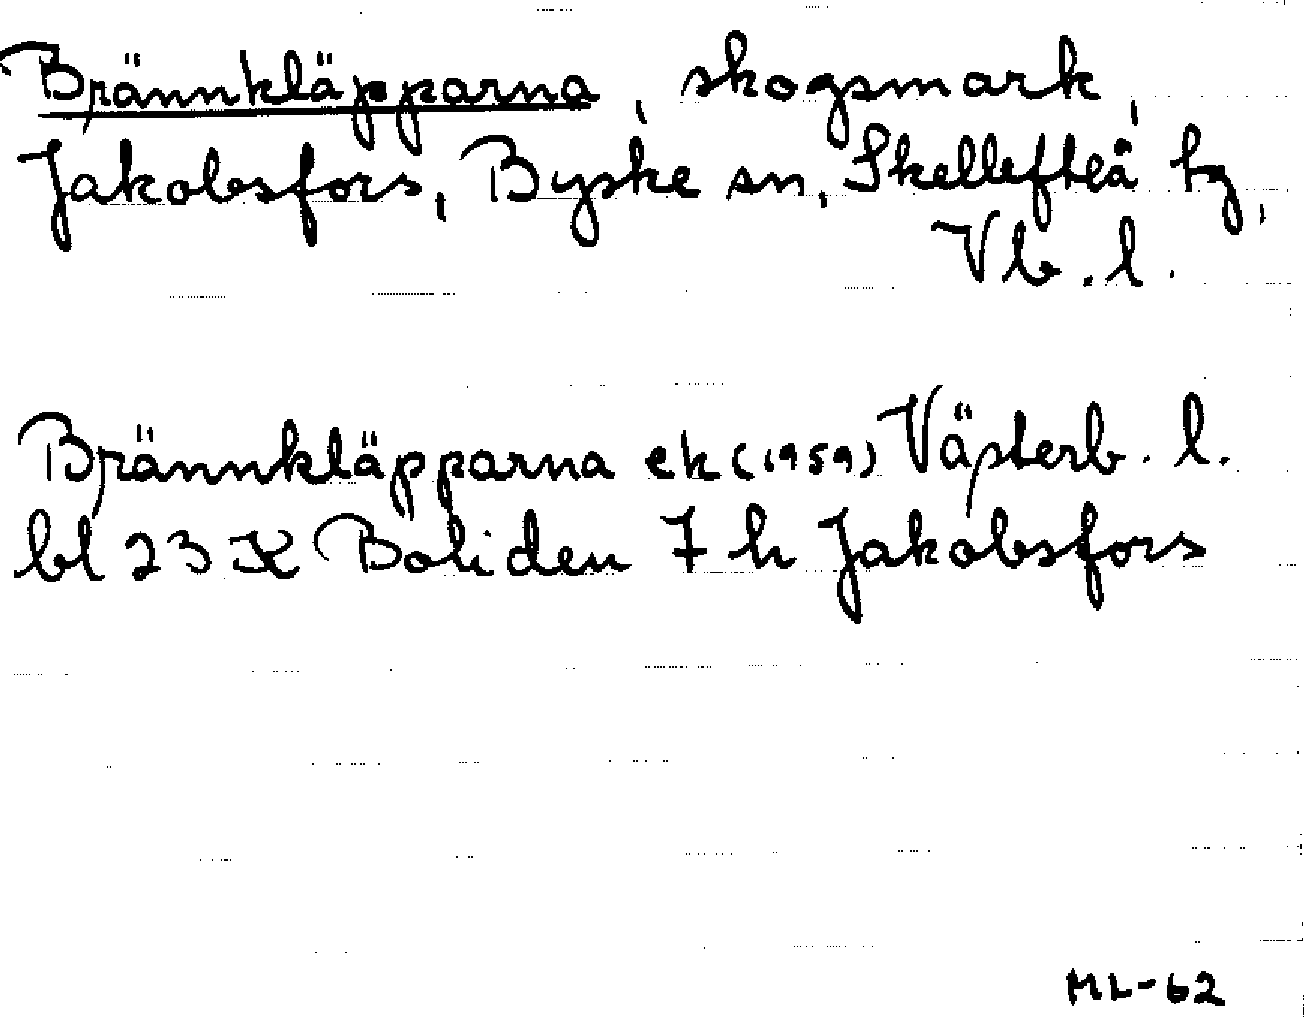 Brännkläpparna, skogsmark,
Jakobsfors, Byske sn, Skellefteå tg,
Vb. l.
Brännkläpparna ek (1959) Västerb. l.
bl 23 K Boliden 7 h Jakobsfors
ML-62